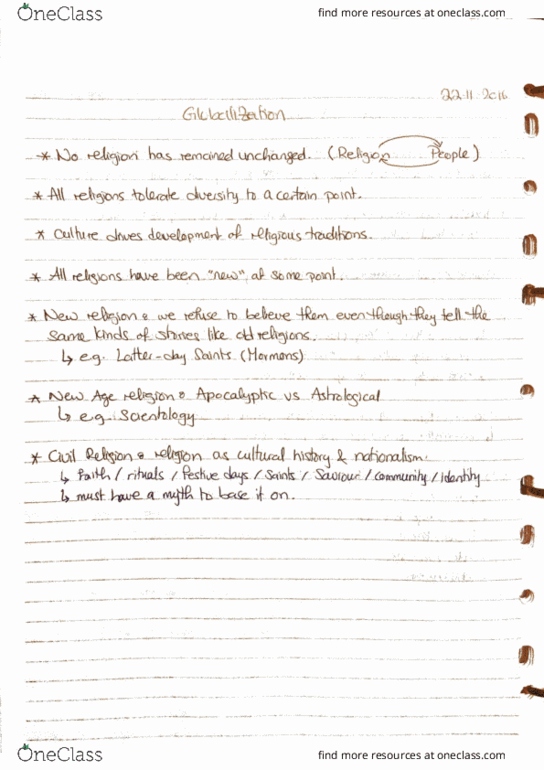 OneClass
find more resources at oneclass.com
22.11.2016
Globalization
* No religion has remained unchanged. (Religion People)
* All religions tolerate diversity to a certain point.
* Culture drives development of religious traditions.
* All religions have been "new" at some point.
* New religion: we refuse to believe them even though they tell the
same kinds of stories like old religions.
↳ e.g. Latter-day Saints (Mormons)
* New Age religion: Apocalyptic vs Astrological
↳ e.g. Scientology
* Civil Religion: religion as cultural history & nationalism.
↳ Faith / rituals / Festive days / Saints / Saviour / community / identity
↳ must have a myth to base it on.
OneClass
find more resources at oneclass.com